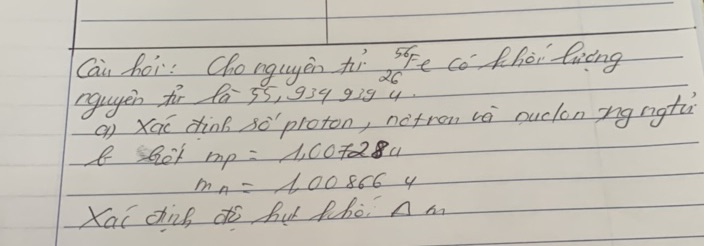 Câu hỏi: Cho nguyên tử ⁵⁶₂₆Fe có khối lượng
nguyên tử là 55,934939 u.
a) Xác định số proton, nơtron và nuclon ng ngtử
b Biết mp = 1,00728u
mn = 1,00866 u
Xác định độ hụt khối Δm